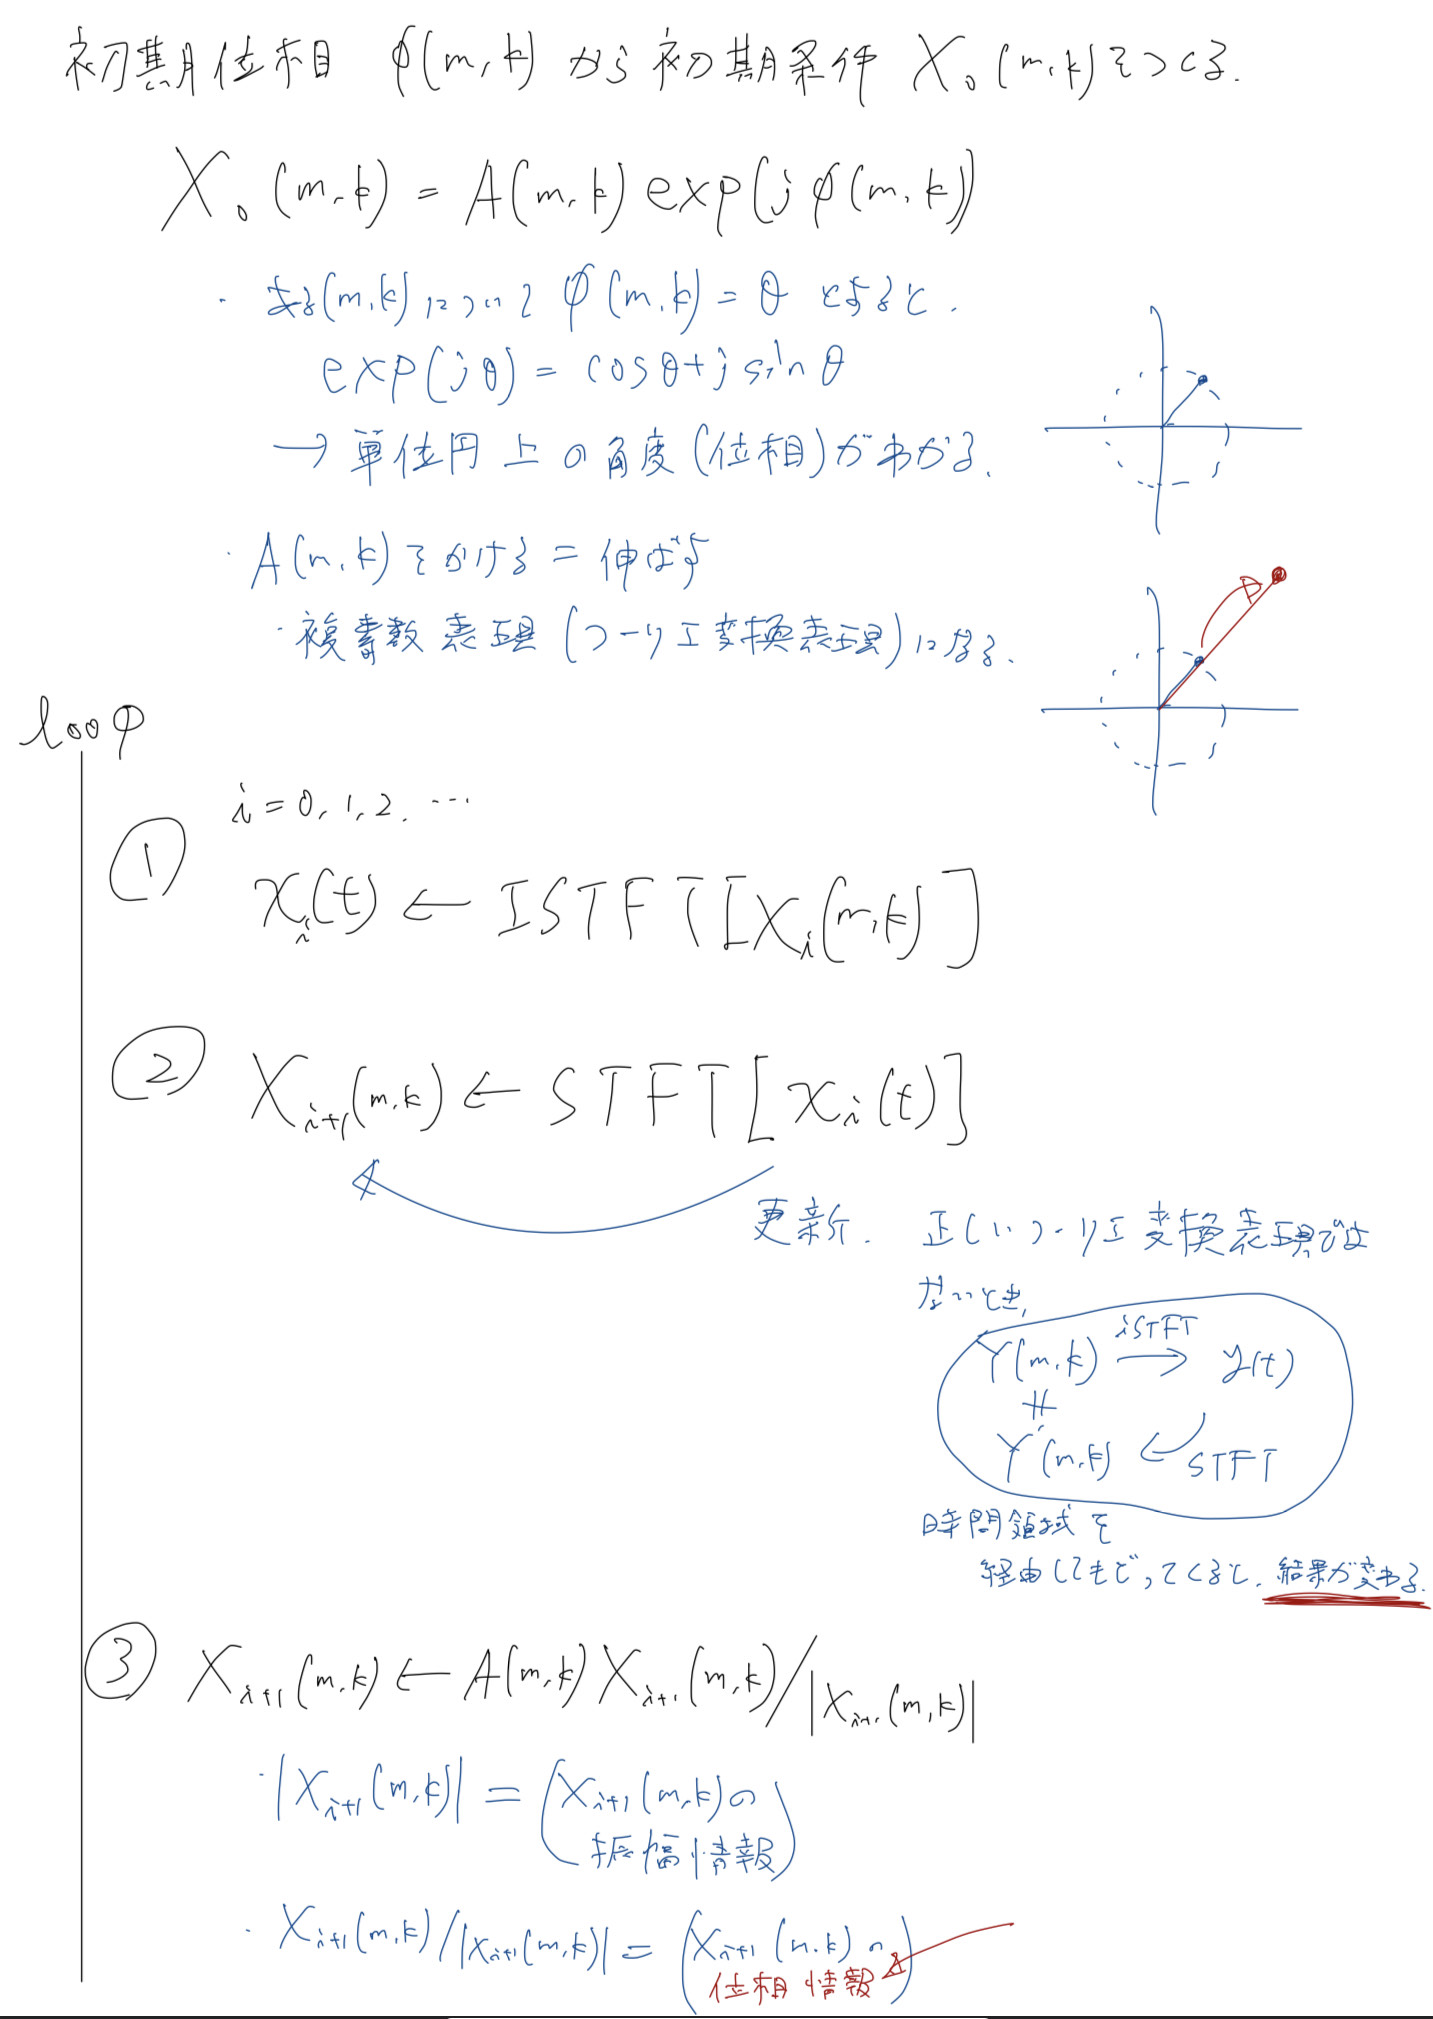 初期位相 φ(m,k) から初期条件 X₀(m,k)をつくる.
X₀(m,k) = A(m,k) exp(jφ(m,k))
・ある(m,k)について φ(m,k) = θ とすると.
exp(jθ) = cosθ+j sinθ
→ 単位円上の角度(位相)がわかる.
・A(m,k)をかける = 伸ばす
・複素数表現(フーリエ変換表現)になる.
loop
i = 0, 1, 2, …
① xᵢ(t) ← ISTFT[Xᵢ(m,k)]
② Xᵢ₊₁(m,k) ← STFT[xᵢ(t)]
更新. 正しいフーリエ変換表現では
ないとき,
Y(m,k) iSTFT → y(t)
≠
Y'(m,k) ← STFT
時間領域を
経由してもどってくると, 結果が変わる.
③ Xᵢ₊₁(m,k) ← A(m,k) Xᵢ₊₁(m,k)/|Xᵢ₊₁(m,k)|
・|Xᵢ₊₁(m,k)| = (Xᵢ₊₁(m,k)の
振幅情報)
・Xᵢ₊₁(m,k)/|Xᵢ₊₁(m,k)| = (Xᵢ₊₁(m,k)の
位相情報)